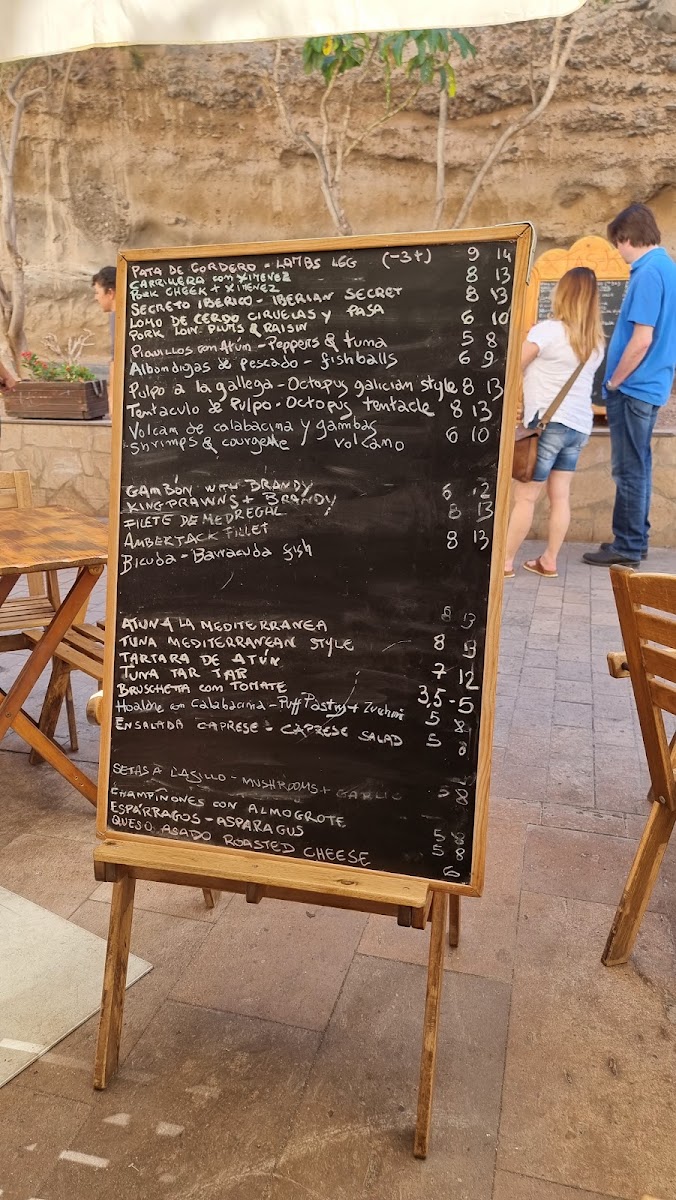 PATA DE CORDERO - LAMBS LEG (-3+) 9 14
CARRILLERA con XIMENEZ 8 13
PORK CHEEK + XIMENEZ
SECRETO IBERICO - IBERIAN SECRET 8 13
LOMO DE CERDO CIRUELAS Y PASA 6 10
PORK LOIN PLUMS & RAISIN
Piquillos con Atún - Peppers & tuna 5 8
Albondigas de pescado - fishballs 6 9
Pulpo a la gallega - Octopus galician style 8 13
Tentaculo de Pulpo - Octopus tentacle 8 13
Volcám de calabacina y gambas 6 10
Shrimps & courgette volcano
GAMBÓN WITH BRANDY 6 12
KINGPRAWNS + BRANDY
FILETE DE MEDREGAL 8 13
AMBERJACK FILLET
Bicuda - Barracuda fish 8 13
ATUN A LA MEDITERRANEA 8 13
TUNA MEDITERRANEAN STYLE
TARTARA DE ATÚN 8 13
TUNA TAR TAR
BRUSCHETTA com TOMATE 7 12
Hoaldre con Calabacina - Puff Pastry + Zuchini 3,5 - 5
ENSALADA CAPRESE - CAPRESE SALAD 5 8
5 8
SETAS A L'AJILLO - MUSHROOMS + GARLIC 5 8
CHAMPIÑONES CON ALMOGROTE
ESPÁRRAGOS - ASPARAGUS 5 8
QUESO ASADO ROASTED CHEESE 5 8
6